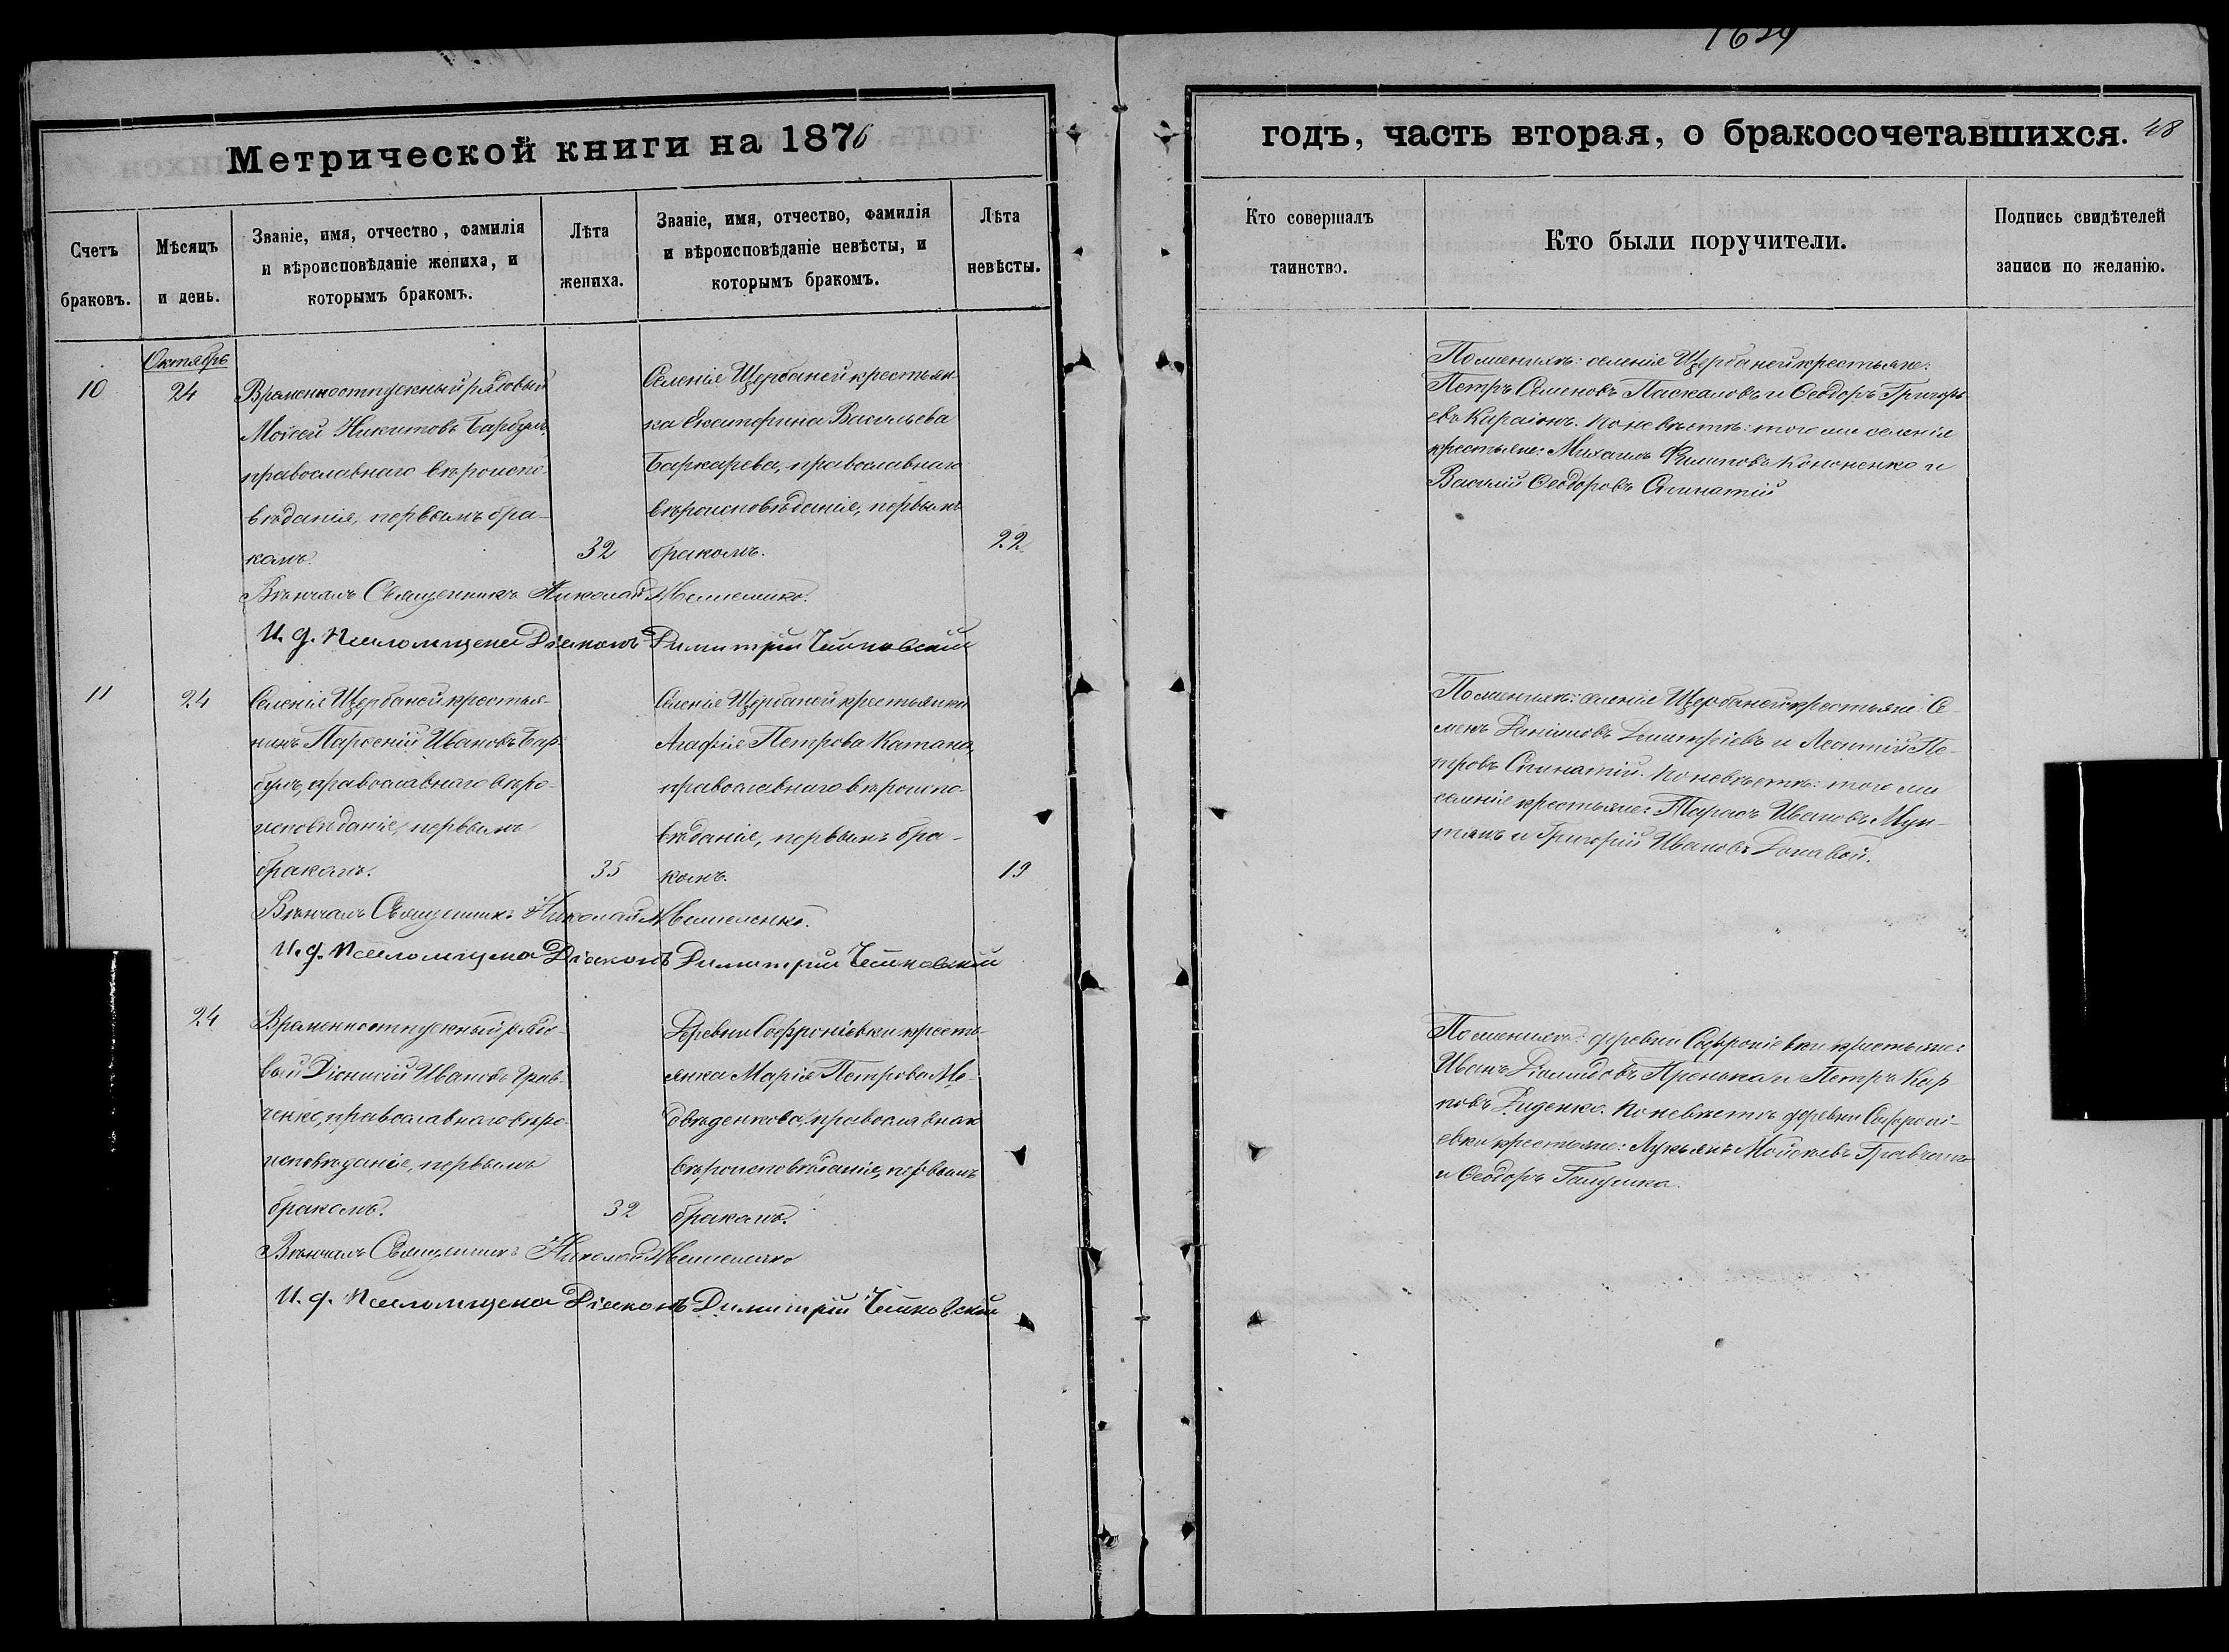 1629
Метрической книги на 1876
годъ, часть вторая, о бракосочетавшихся. 48
Счетъ браковъ.
Мѣсяцъ и день.
Званіе, имя, отчество, фамилія
и вѣроисповѣданіе жениха, и
которымъ бракомъ.
Лѣта
жениха.
Званіе, имя, отчество, фамилія
и вѣроисповѣданіе невѣсты, и
которымъ бракомъ.
Лѣта
невѣсты.
Кто совершалъ
таинство.
Кто были поручители.
Подпись свидѣтелей
записи по желанію.
Октябрь
10
24
Временноотпускный рядовый
Моисей Никитовъ Барбулъ,
православнаго вѣроиспо-
вѣданія, первымъ бра-
комъ.
32
Селенія Щербаней крестьян-
ка Екатерина Васильева
православнаго
вѣроисповѣданія, первымъ
бракомъ.
22
Вѣнчалъ Священникъ Николай
И. д. Псаломщика Діаконъ Димитрій
По женихѣ: селенія Щербаней крестьяне:
Петръ Семеновъ Паскаловъ и Ѳеодоръ Григорь-
евъ Караіонъ. По невѣстѣ: того же селенія
крестьяне: Михаилъ Филиповъ Кононенко и
Василій Ѳеодоровъ
11
24
Селенія Щербаней крестья-
нинъ Парѳеній Ивановъ Бар-
булъ, православнаго вѣро-
исповѣданія, первымъ
бракомъ.
35
Селенія Щербаней крестьянка
Агафія Петрова Катана,
православнаго вѣроиспо-
вѣданія, первымъ бра-
комъ.
19
Вѣнчалъ Священникъ Николай
И. д. Псаломщика Діаконъ Димитрій
По женихѣ: селенія Щербаней крестьяне: Се-
менъ Димитріевъ и Леонтій Пе-
тровъ По невѣстѣ: того же
селенія крестьяне: Тарасъ Ивановъ Мун-
тянъ и Григорій Ивановъ
24
Временноотпускный рядо-
вый Діонисій Ивановъ Грав-
ченко, православнаго вѣро-
исповѣданія, первымъ
бракомъ.
32
Деревни Софроніевки кресть-
янка Марія Петрова Ме-
двѣденкова, православнаго
вѣроисповѣданія, первымъ
бракомъ.
Вѣнчалъ Священникъ Николай
И. д. Псаломщика Діаконъ Димитрій
По женихѣ: деревни Софроніевки крестьяне:
Иванъ Діомидовъ и Петръ Кар-
повъ Диденко. По невѣстѣ деревни Софроні-
евки крестьяне: Лукьянъ Моисеевъ Гравченко
и Ѳеодоръ